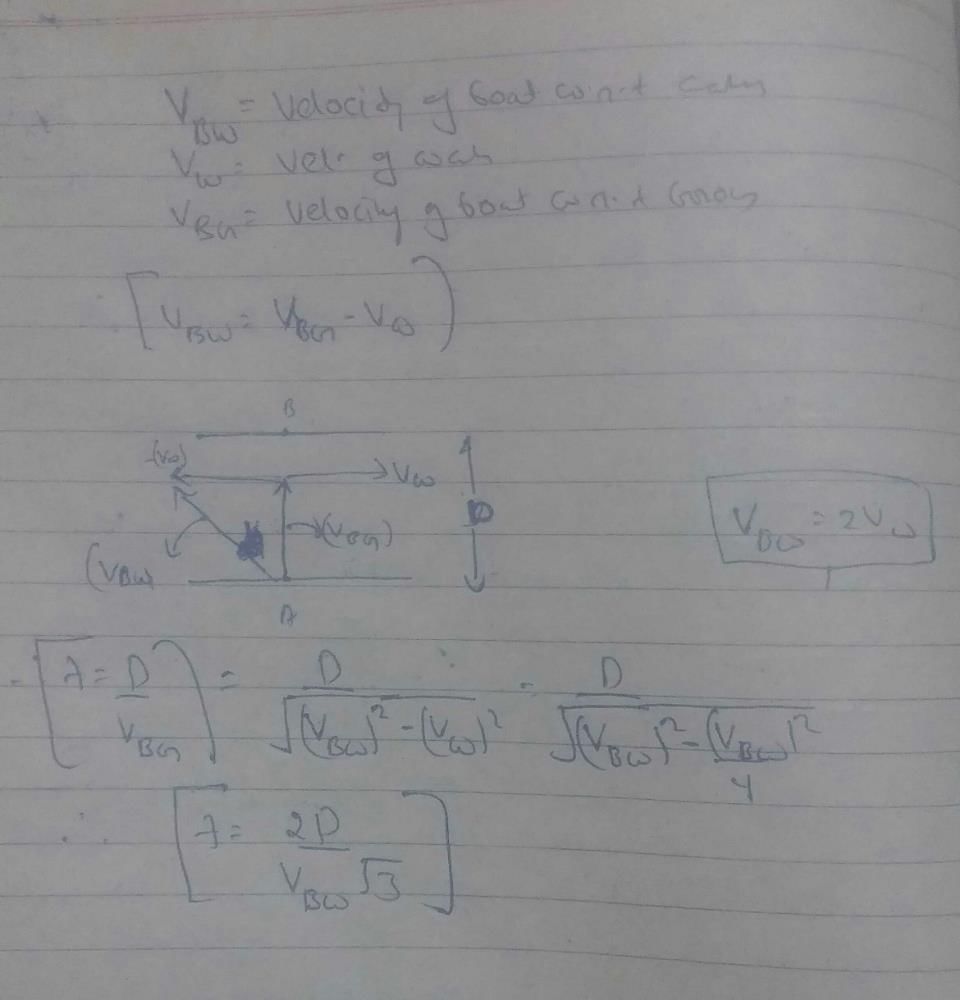 V_BW = Velocity of boat w.r.t
V_w = Vel. of
V_BG = Velocity of boat w.r.t
[V_BW = V_BG - V_w]
B
-(Vw) V_w
D
(V_BG) V_BW = 2V_w
(V_BW
A
[t = D/V_BG] = D/√((V_BW)² - (V_w)²) = D/√((V_BW)² - (V_BW)²/4)
∴ [t = 2D/(V_BW √3)]